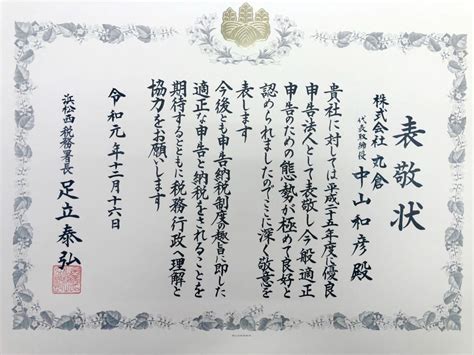 表敬状
株式会社 丸倉
代表取締役 中山和彦 殿
貴社に対しては平成二十五年度に優良
申告法人として表敬し今般適正
申告のための態勢が極めて良好と
認められましたのでここに深く敬意を
表します
今後とも申告納税制度の趣旨に即した
適正な申告と納税をされることを
期待するとともに税務行政へ理解と
協力をお願いします
令和元年十二月十六日
浜松西税務署長 足立泰弘